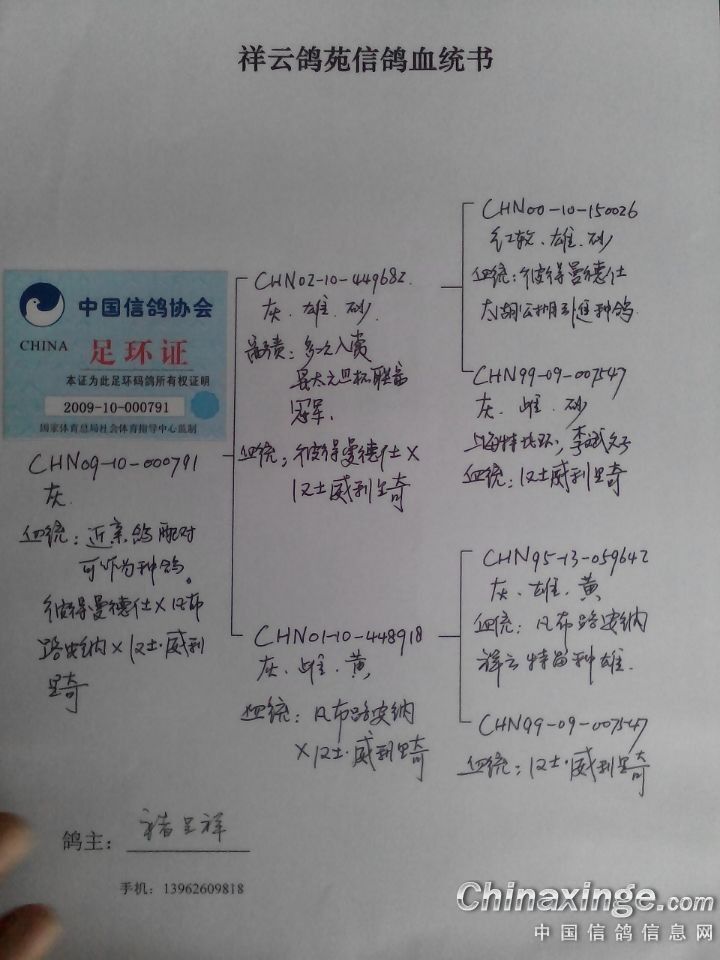 祥云鸽苑信鸽血统书
中国信鸽协会
CHINA 足环证
本证为此足环码鸽所有权证明
2009-10-000791
国家体育总局社会体育指导中心监制
CHN09-10-000791
灰
血统：近亲鸽配对
可作为种鸽。
彼得曼德仕×凡布
路安纳×汉士·威利
里奇
CHN02-10-449682
灰．雄．砂
多次入赏
元旦杯
冠军．
血统：彼得曼德仕×
汉士威利里奇
CHN01-10-448918
灰．雌．黄
血统：凡布路安纳
×汉士·威利里奇
CHN00-10-150026
红轮．雄．砂
血统：彼得曼德仕
太湖公棚引进种鸽
CHN99-09-007547
灰．雌．砂
上海特比环，
血统：汉士威利里奇
CHN95-13-059642
灰．雄．黄
血统：凡布路安纳
祥云特留种雄．
CHN99-09-007547
血统：汉士·威利里奇
鸽主：褚呈祥
手机：13962609818
Chinaxinge.com
中国信鸽信息网